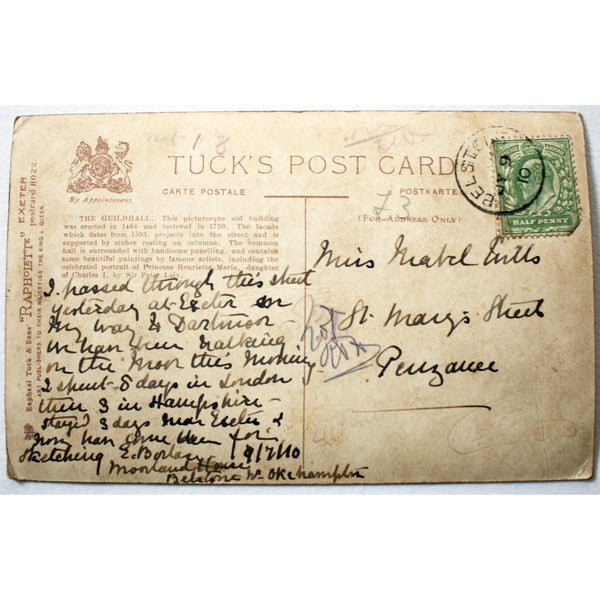 TUCK'S POST CARD
CARTE POSTALE
POSTKARTE
By Appointment.
(For Address Only)
THE GUILDHALL. This picturesque old building
was erected in 1464 and restored in 1720. The facade
which dates from 1593, projects into the street and is
supported by arches resting on columns. The common
hall is surrounded with handsome panelling, and contains
some beautiful paintings by famous artists, including the
celebrated portrait of Princess Henrietta Maria, daughter
of Charles I, by Sir Peter Lely.
Raphael Tuck & Sons' "RAPHOLETTE" EXETER
postcard R022
ART PUBLISHERS TO THEIR MAJESTIES THE KING & QUEEN.
I passed through this street
yesterday at Exeter on
my way to Dartmoor -
we have been walking
on the Moor this Morning
I spent 5 days in London
then 3 in Hampshire -
stayed 3 days near Exeter &
now have come here for
sketching E. Borlase 9/7/10
Moorland House
Belstone Nr Okehampton
Miss Mabel
St. Mary's Street
Penzance
£3
18
BELSTO
JY 9
10
HALF PENNY